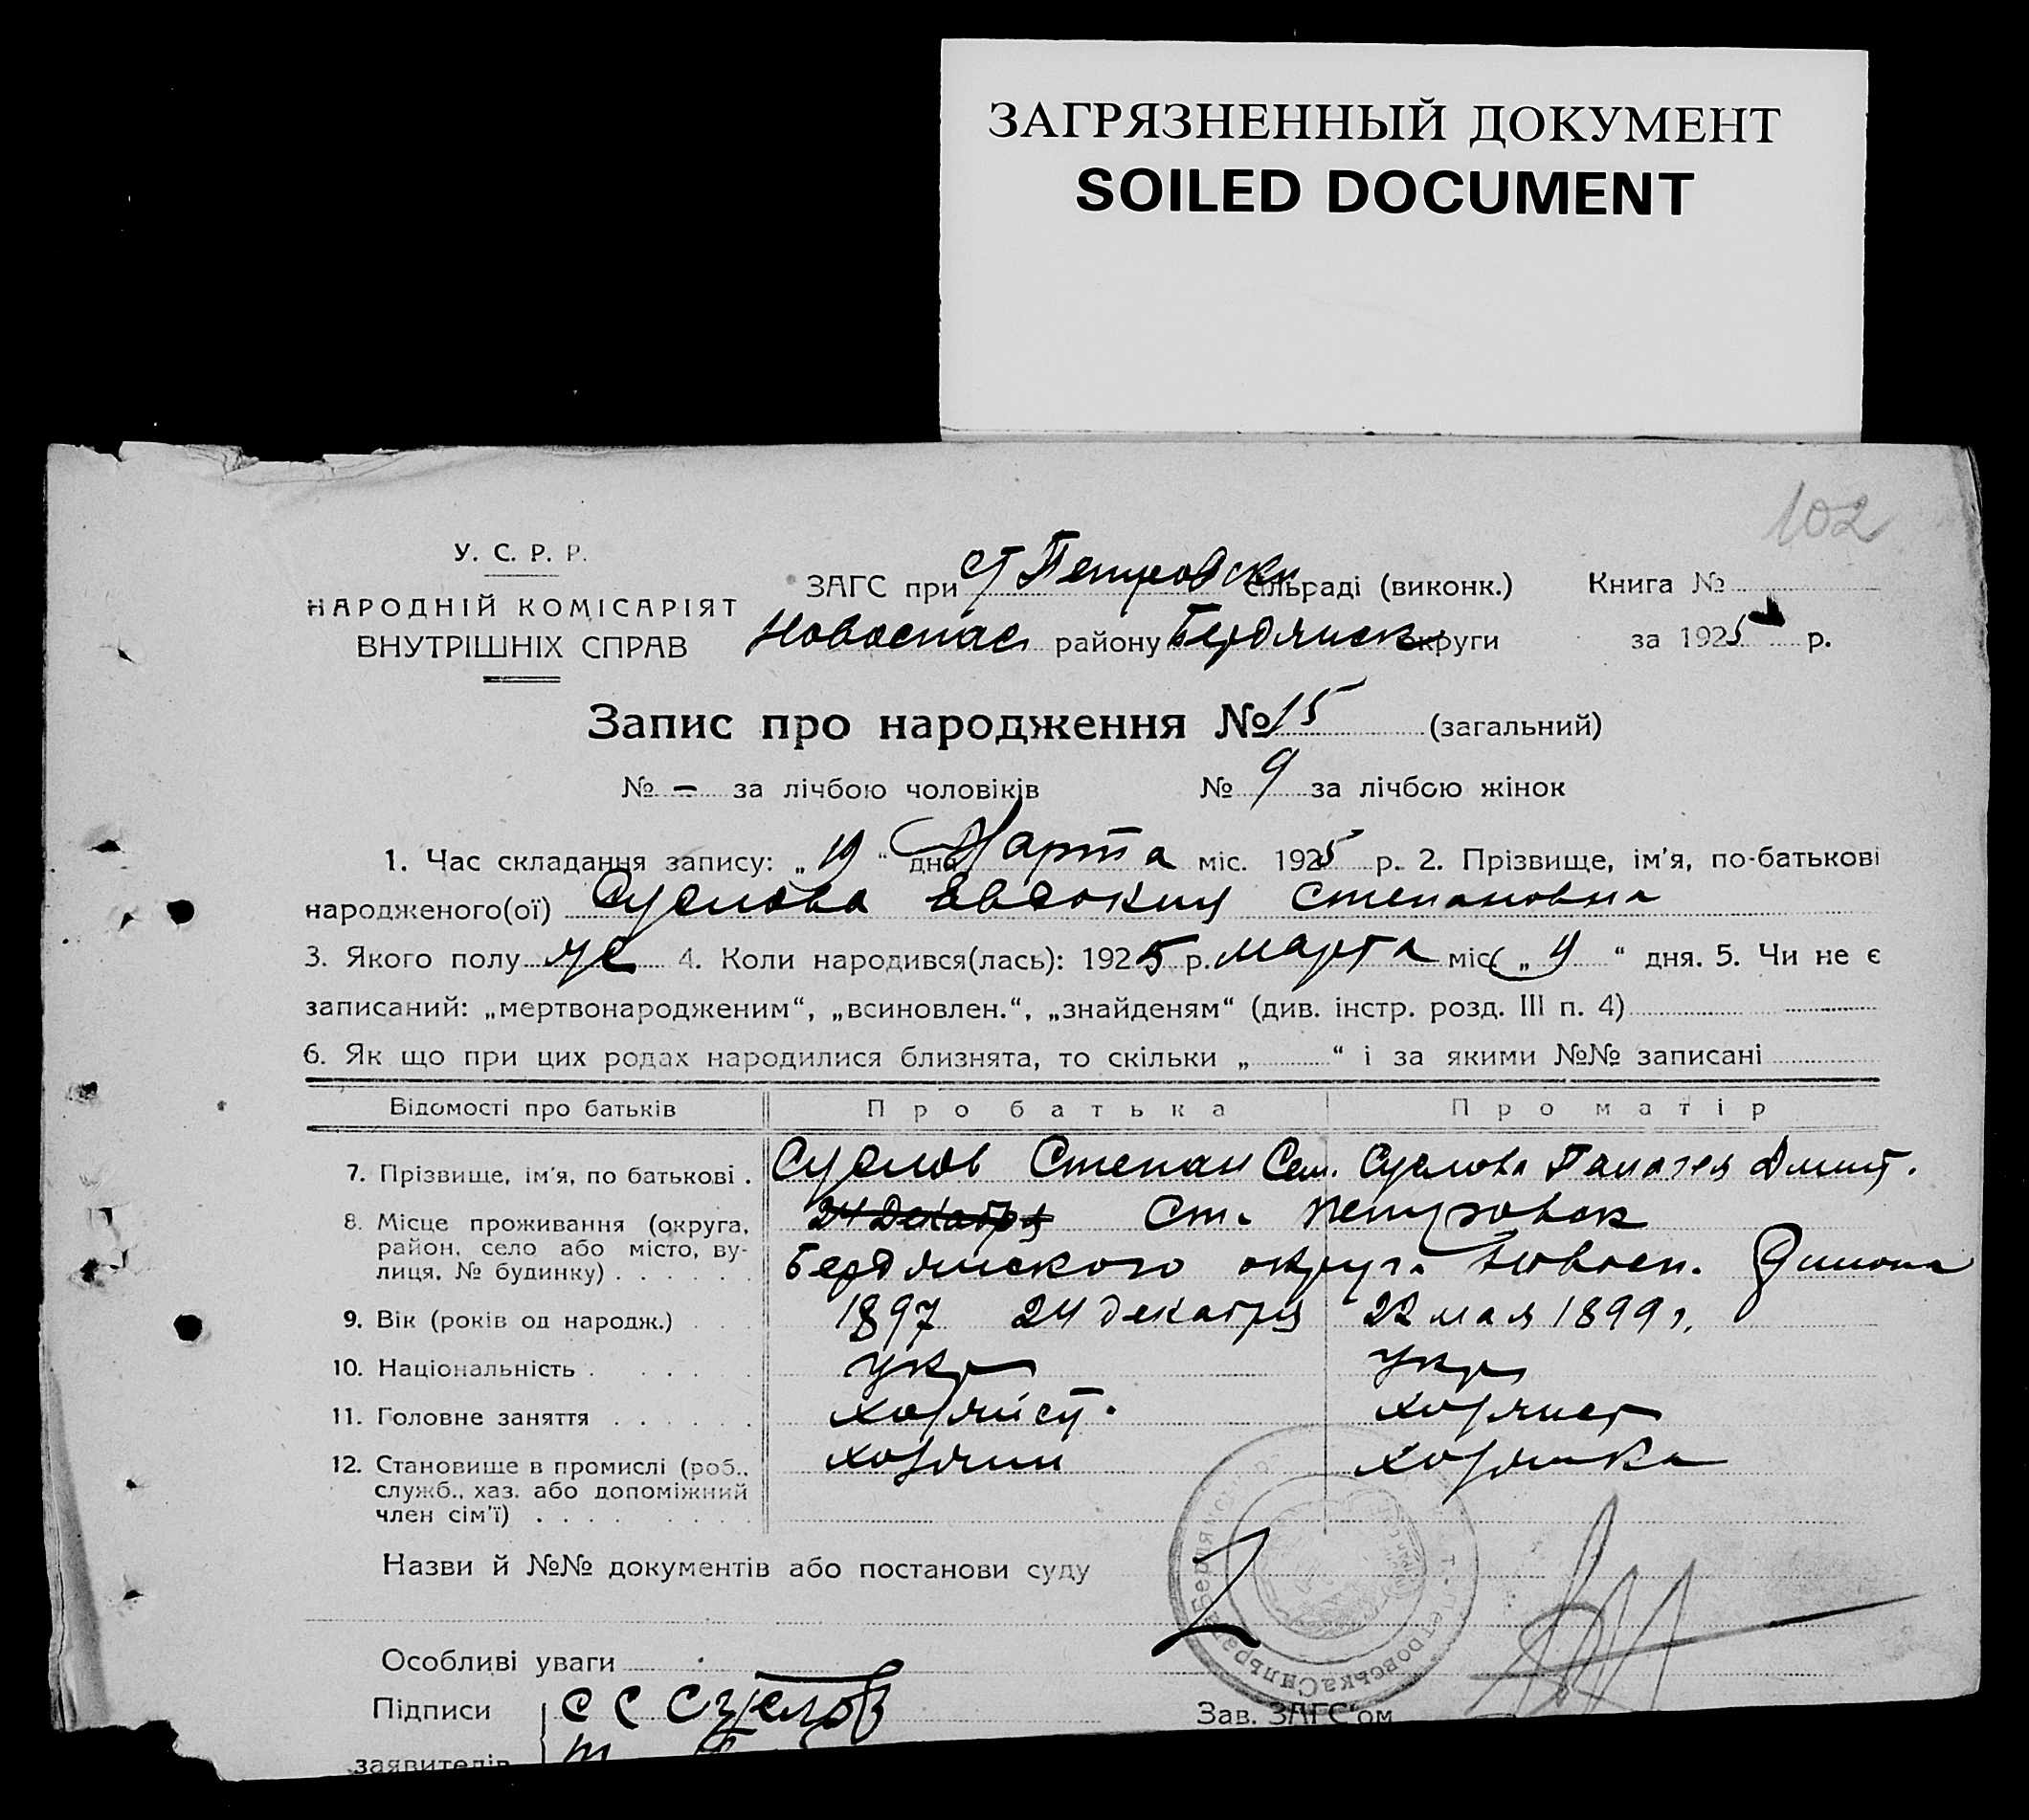 ЗАГРЯЗНЕННЫЙ ДОКУМЕНТ
SOILED DOCUMENT
102
У. С. Р. Р.
НАРОДНІЙ КОМІСАРІЯТ
ВНУТРІШНІХ СПРАВ
ЗАГС при ст Петровск сільраді (виконк.) Книга №
Новоспас району Бердянск округи за 1925 р.
Запис про народження № 15 (загальний)
№ – за лічбою чоловіків № 9 за лічбою жінок
1. Час складання запису: „19“ дня Марта міс. 1925 р. 2. Прізвище, ім'я, по-батькові
народженого(ої) Суслова Евдокия Степановна
3. Якого полу же 4. Коли народився(лась): 1925 р. марта міс. „ “ дня. 5. Чи не є
записаний: „мертвонародженим“, „всиновлен.“, „знайденям“ (див. інстр. розд. III п. 4)
6. Як що при цих родах народилися близнята, то скільки „ “ і за якими №№ записані
Відомості про батьків Про батька Про матір
7. Прізвище, ім'я, по батькові . Суслов Степан Сем. Суслова Палагея Дмит.
8. Місце проживання (округа, район, село або місто, вулиця, № будинку) 24 Декабря Ст. Петровок
Бердянского округа Новосп. Района
9. Вік (років од народж.) 1897 24 декабря 22 мая 1899 г.
10. Національність укр укр
11. Головне заняття хозяйст. хозяист
12. Становище в промислі (роб.. служб., хаз. або допоміжний член сім'ї) хозяин хозяйка
Назви й №№ документів або постанови суду
Особливі уваги
Підписи С С Суслов
Зав. ЗАГС'ом
заявителів